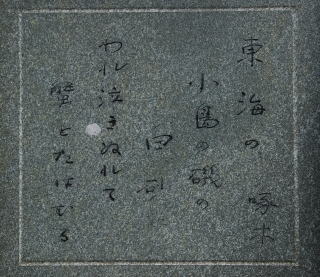 東海の
啄木
小島の磯の
われ泣きぬれて
蟹とたはむる